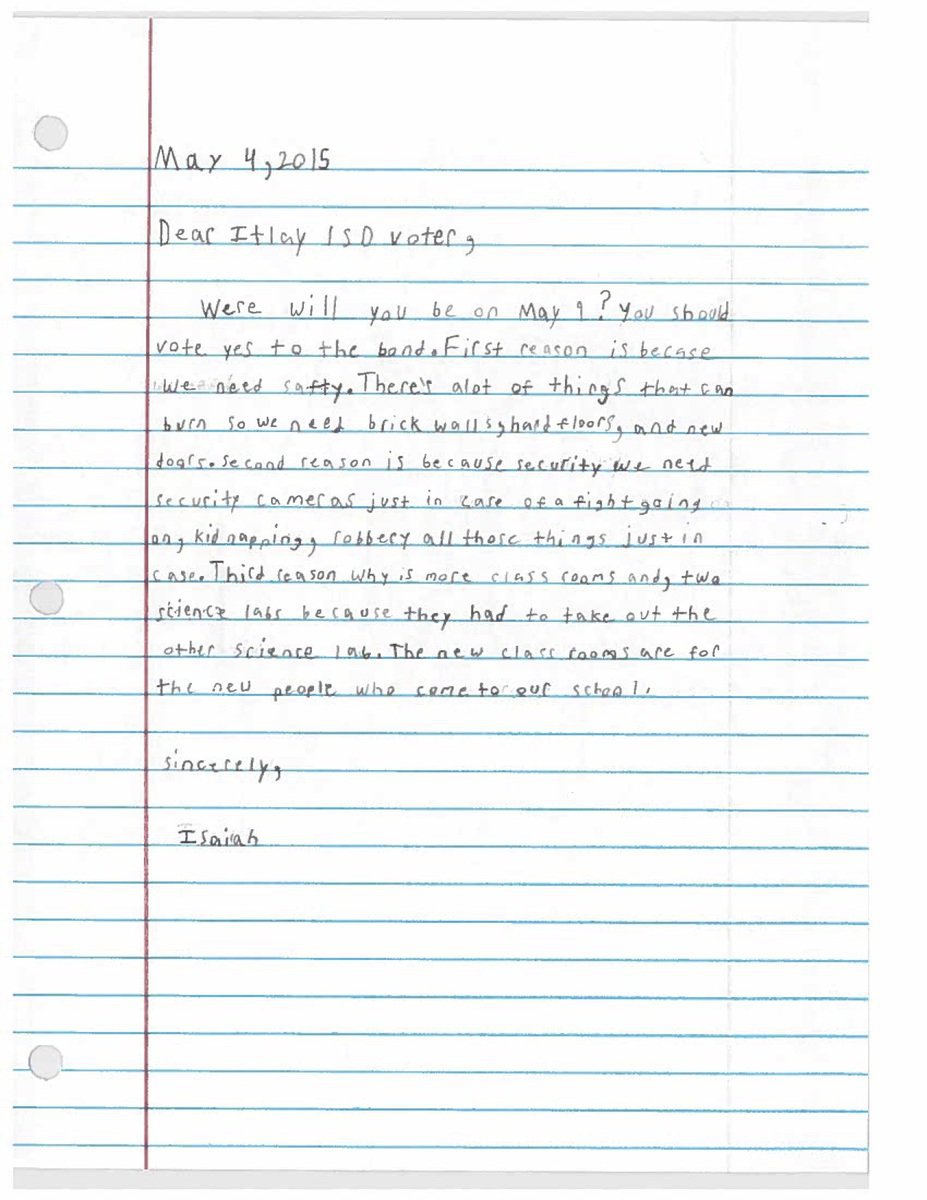 May 4, 2015
Dear Itlay ISD voter,
Were will you be on May 9? You should
vote yes to the bond. First reason is becase
We need safty. There's alot of things that can
burn so we need brick walls, hard floors, and new
doors. Second reason is because security we need
security cameras just in case of a fight going
on, kidnapping, robbery all those things just in
case. Third reason why is more class rooms and, two
science labs because they had to take out the
other science lab. The new class rooms are for
the new people who come to our school.
sincerely,
Isaiah